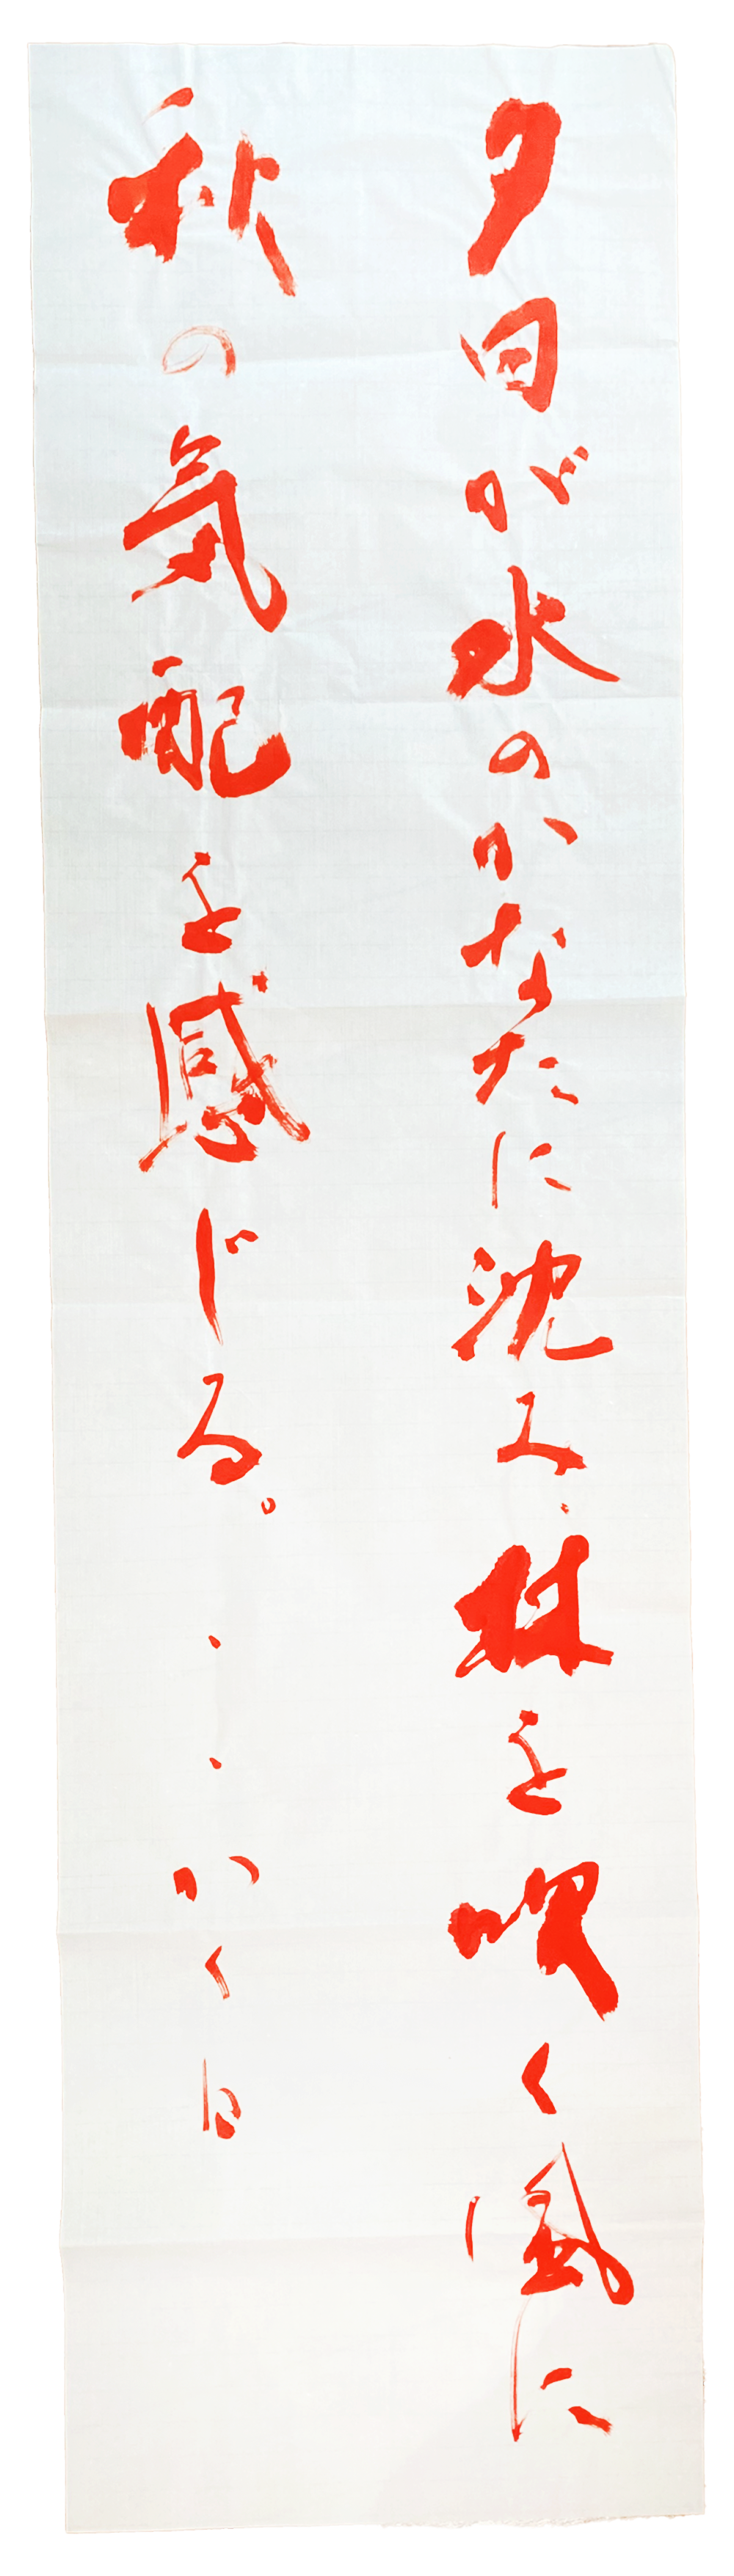 夕日が水のかなたに沈み林を吹く風に
秋の気配を感じる。・・かく日